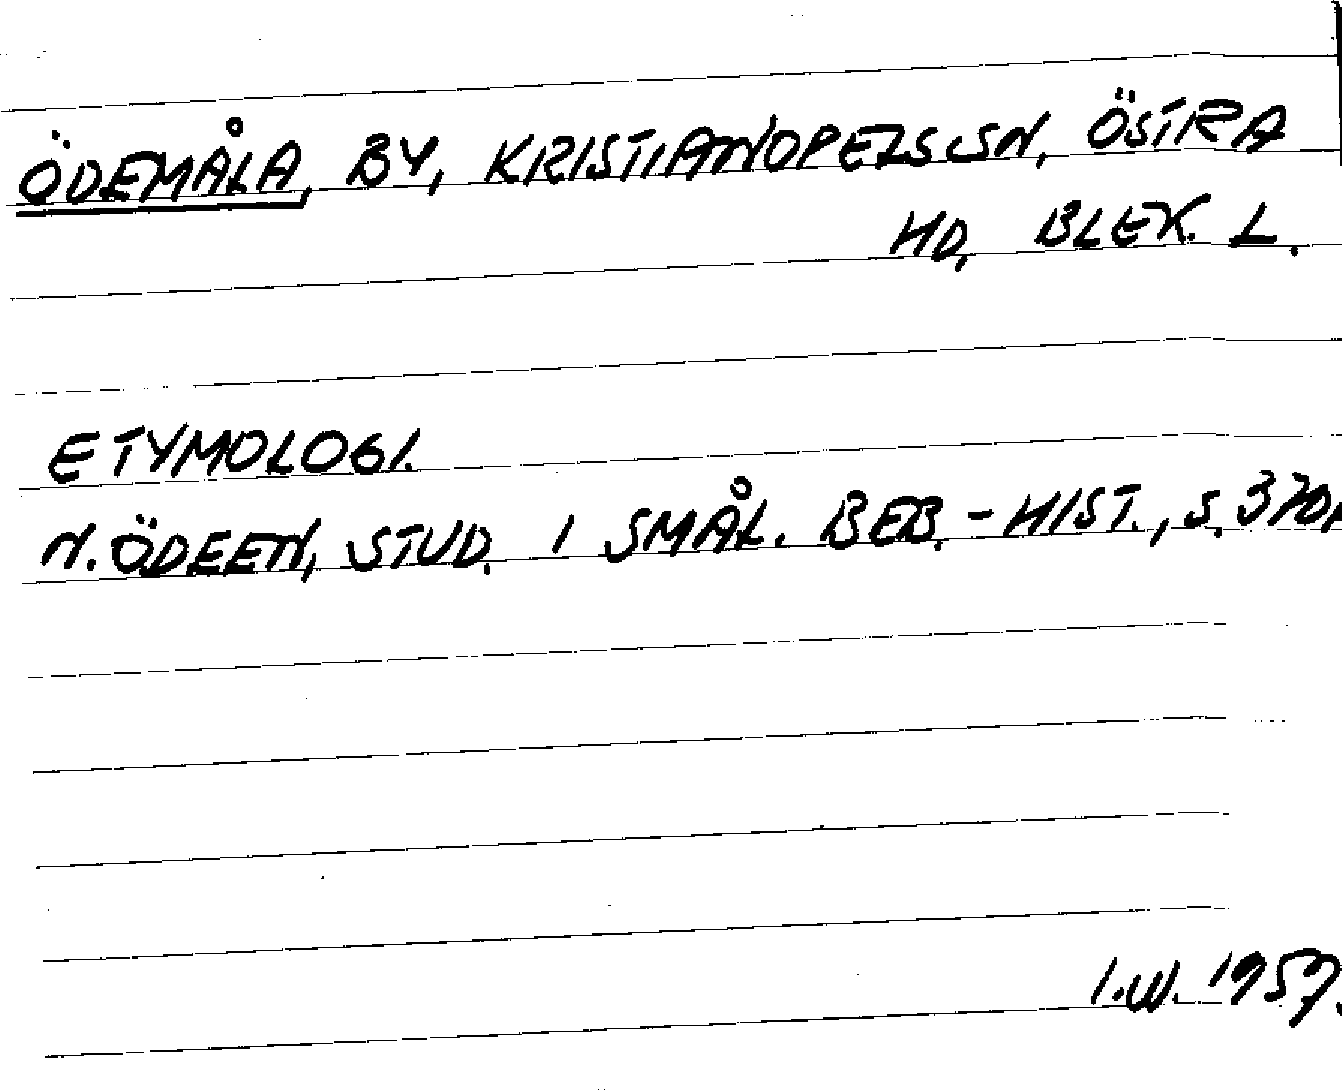 ÖDEMÅLA, BY, KRISTIANOPELS SN, ÖSTRA
HD, BLEK. L.
ETYMOLOGI.
N. ÖDEEN, STUD. I SMÅL. BEB.-HIST., S.
I.W. 1957.